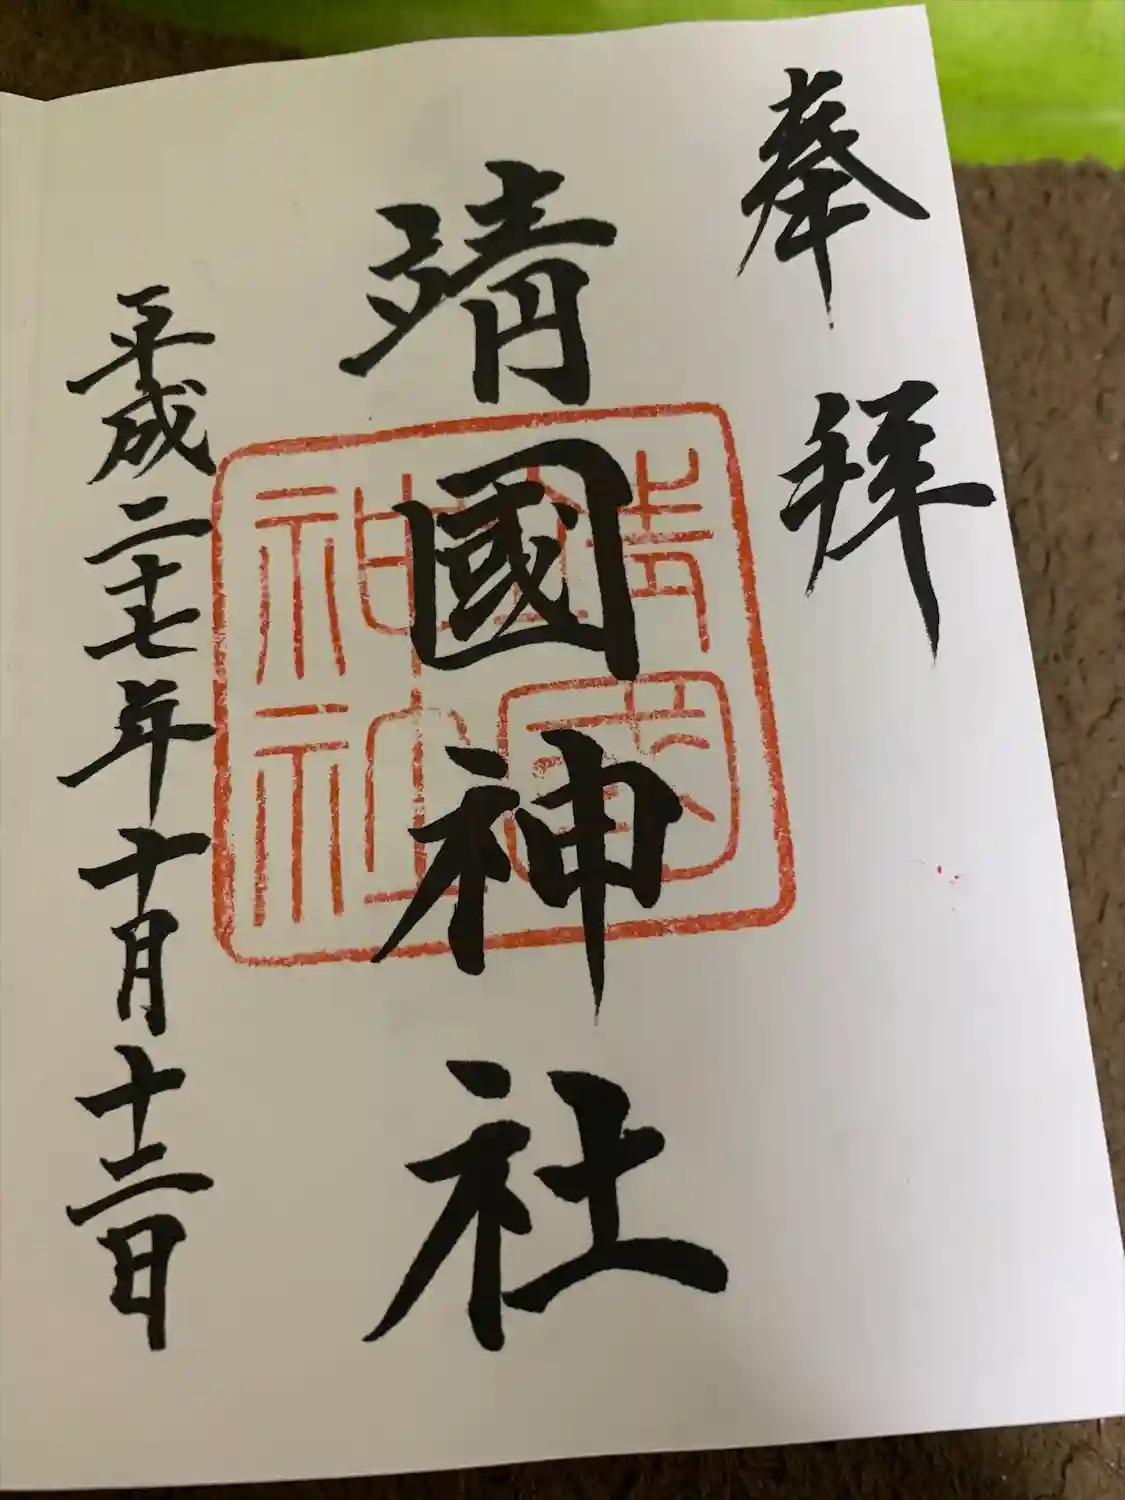 奉拝
靖國神社
平成二十七年十月十二日
靖国
神社